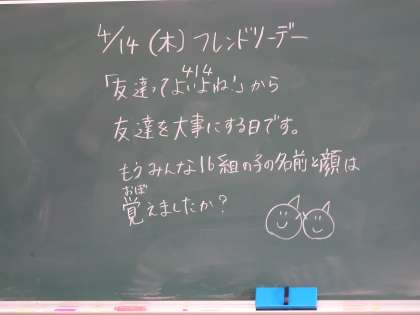 4/14(木)フレンドリーデー
414
「友達ってよいよね!」から
友達を大事にする日です。
もうみんな16組の子の名前と顔は
おぼ
覚えましたか?